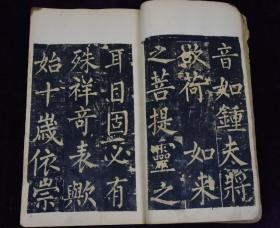 音如鍾夫將
欲荷如来
之菩提靈之
耳目固必有
殊祥奇表歟
始十歲依崇